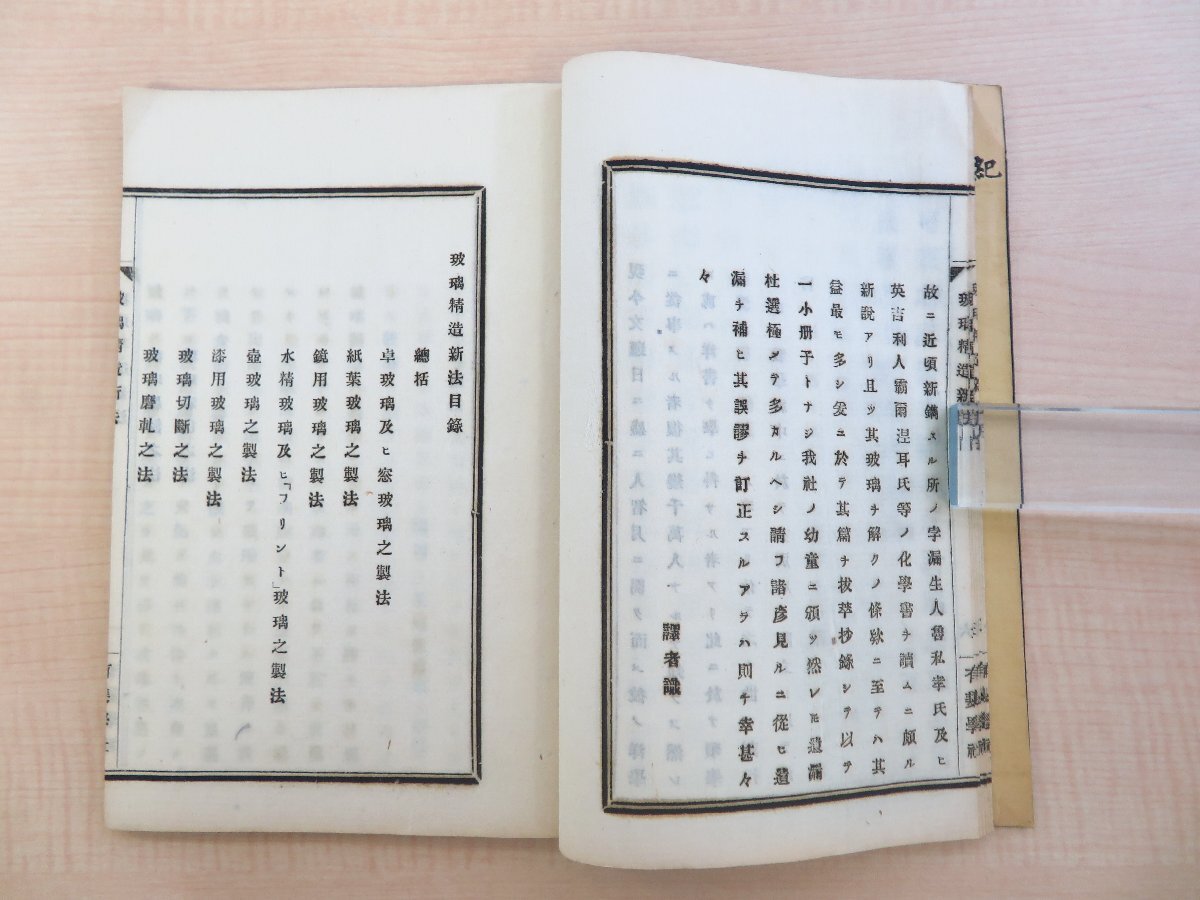 故ニ近頃新鐫スル所ノ孛漏生人魯私孝氏及ヒ
英吉利人霸爾涅耳氏等ノ化學書ヲ讀ムニ頗ル
新說アリ且ツ其玻璃ヲ解クノ條欵ニ至テハ其
益最モ多シ爰ニ於テ其篇ヲ拔萃抄錄シテ以テ
一小册子トナシ我社ノ幼童ニ頒ツ然レヒ遺漏
杜選極メテ多カルヘシ請フ諸彥見ルニ從ヒ遺
漏ヲ補ヒ其誤謬ヲ訂正スルアラハ則チ幸甚々
々
譯者識
玻璃精造新法目錄
總括
卓玻璃及ヒ窓玻璃之製法
紙葉玻璃之製法
鏡用玻璃之製法
水精玻璃及ヒ「フリント」玻璃之製法
壺玻璃之製法
漆用玻璃之製法
玻璃切斷之法
玻璃磨軋之法